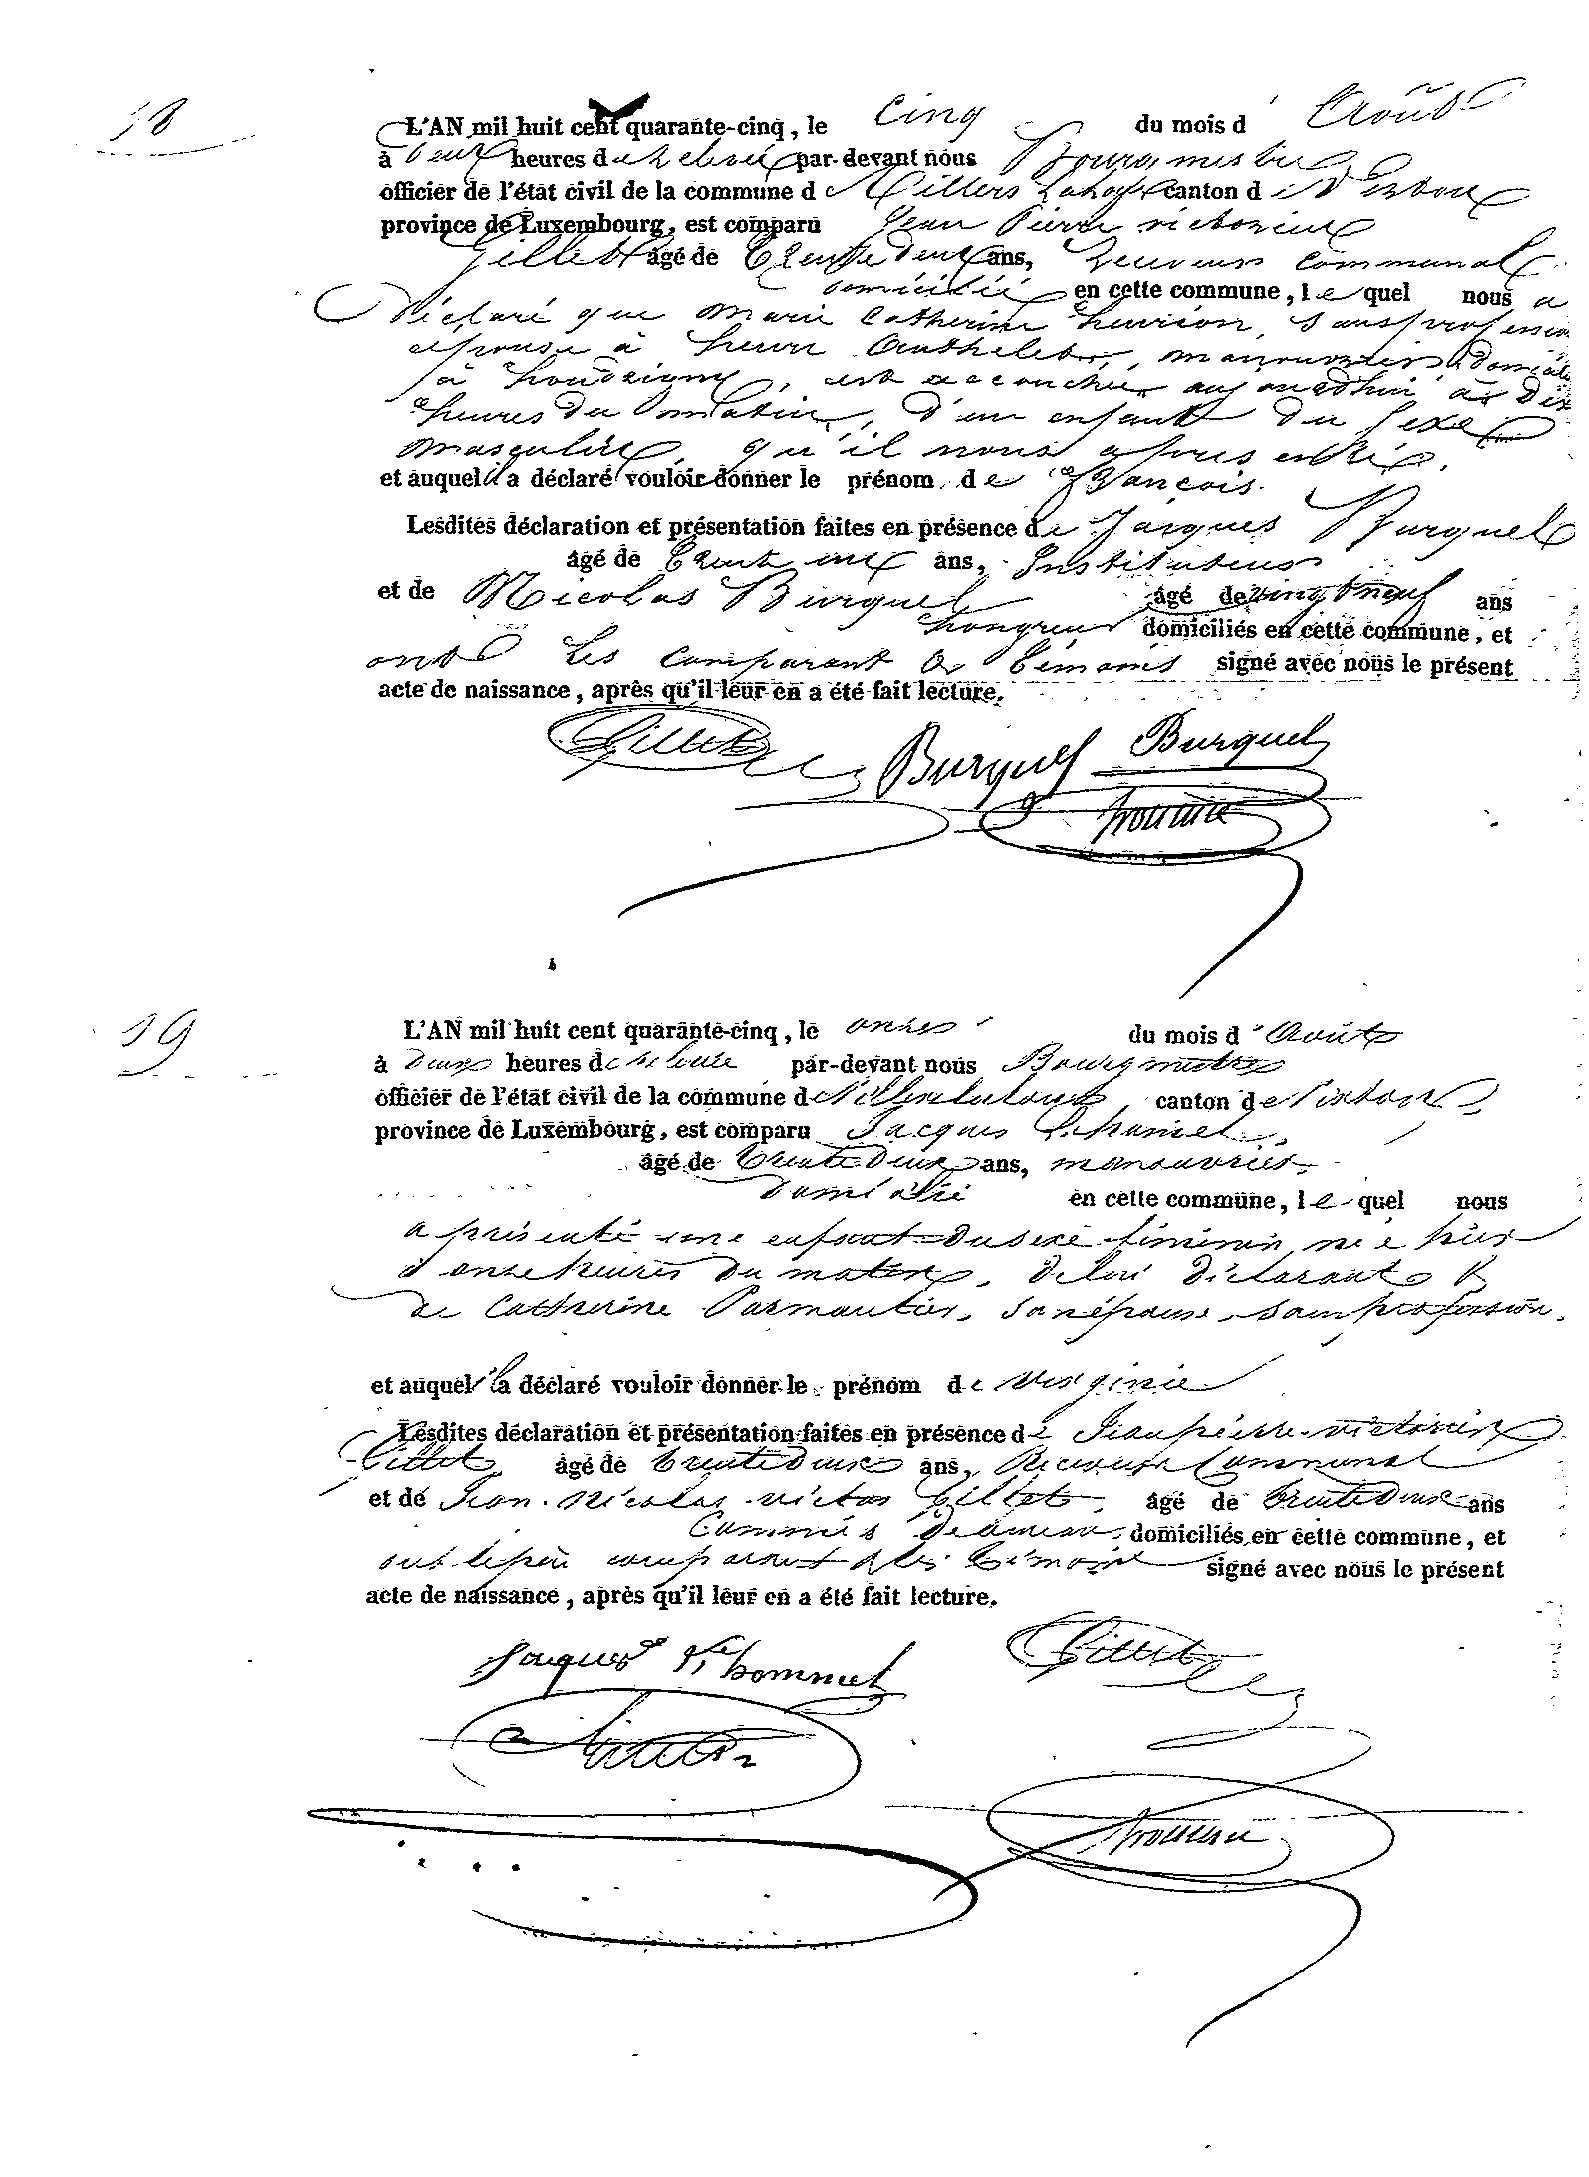 18
L'AN mil huit cent quarante-cinq, le cinq du mois d' Août
à deux heures de relevée par-devant nous Bourgmestre
officier de l'état civil de la commune de Villers Laloue canton de Virton
province de Luxembourg, est comparu Jean Pierre victorien
Gillet âgé de trente deux ans, receveur communal
domicilié en cette commune, lequel nous a
déclaré que marie catherine henrion, sans profession
épouse à henri Authelet, manouvrier, domicilié
à houdrigny, est accouchée aujourd'hui à dix
heures du matin, d'un enfant du sexe
masculin, qu'il nous a présenté,
et auquel il a déclaré vouloir donner le prénom de François.
Lesdites déclaration et présentation faites en présence de Jacques Burquel
âgé de trente ans, Instituteur
et de Nicolas Burquel âgé de vingt neuf ans
hongreur domiciliés en cette commune, et
ont les comparant & témoins signé avec nous le présent
acte de naissance, après qu'il leur en a été fait lecture.
Gillet Burquel Burquel
19
L'AN mil huit cent quarante-cinq, le onze du mois d' Août
à deux heures de relevée par-devant nous Bourgmestre
officier de l'état civil de la commune de Villerslaloue, canton de Virton
province de Luxembourg, est comparu Jacques Lhommel,
âgé de trente deux ans, manouvrier
domicilié en cette commune, lequel nous
a présenté une enfant du sexe féminin, née hier
à onze heures du matin, de lui déclarant &
de Catherine Parmentier, son épouse, sans profession.
et auquel il a déclaré vouloir donner le prénom de virginie
Lesdites déclaration et présentation faites en présence de Jean pierre victorien
Gillet âgé de trente deux ans, Receveur Communal
et de Jean Nicolas victor Gillet, âgé de trente deux ans
Commis de bureau, domiciliés en cette commune, et
ont le père comparant & les témoins signé avec nous le présent
acte de naissance, après qu'il leur en a été fait lecture.
Jacques Lhommel Gillet